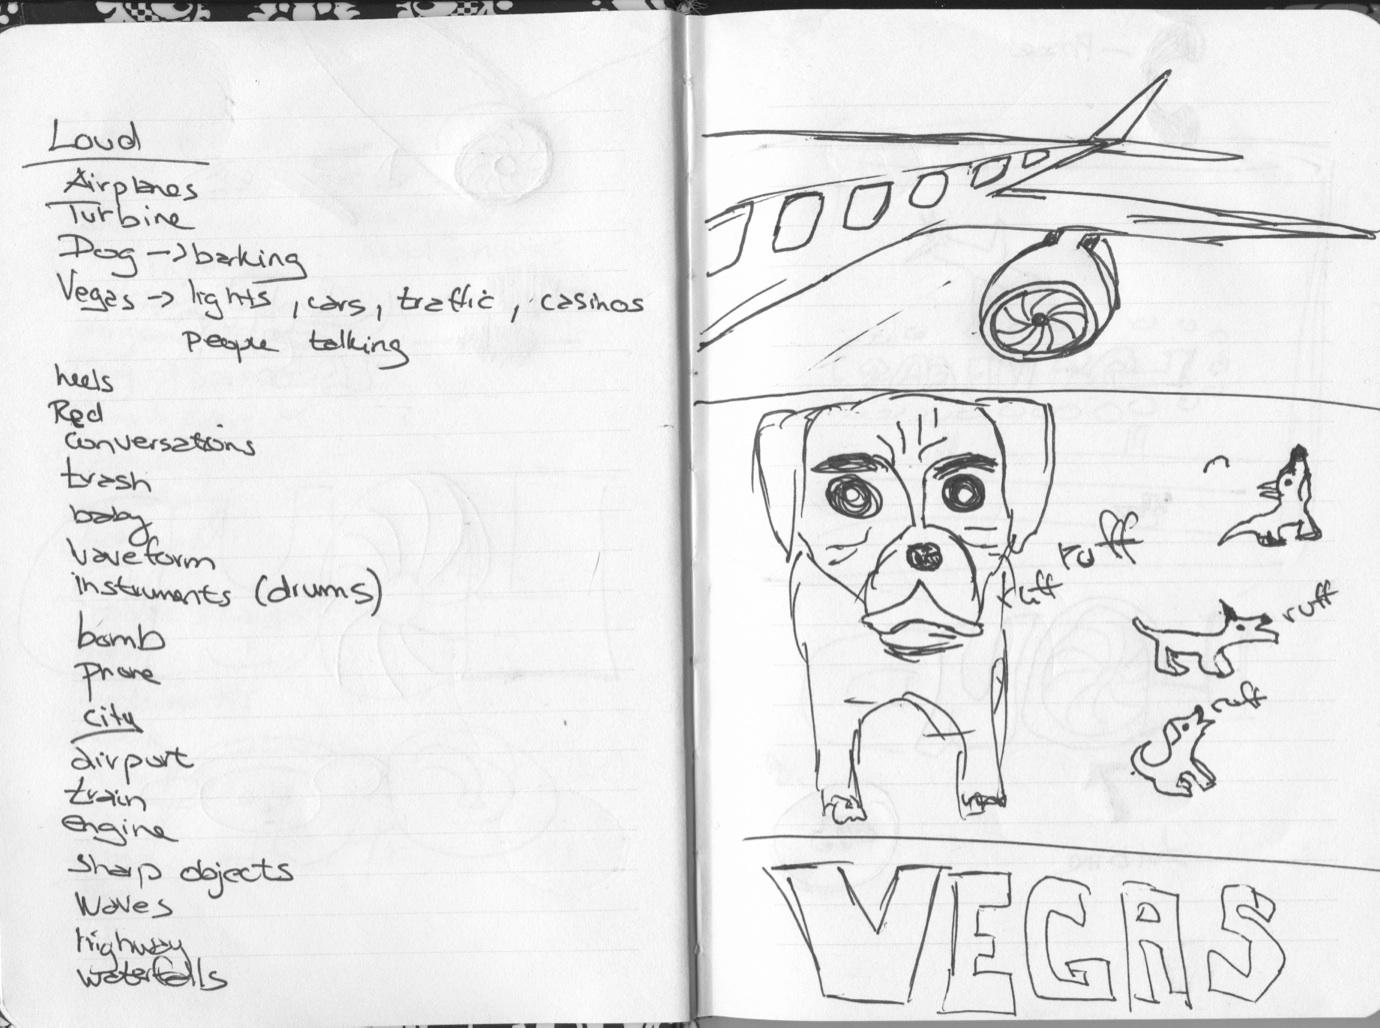 Loud
Airplanes
Turbine
Dog → barking
Vegas → lights, cars, traffic, casinos
people talking
heels
Red
conversations
trash
baby
waveform
instruments (drums)
bomb
phone
city
airport
train
engine
sharp objects
waves
highway
waterfalls
ruff
ruff
ruff
ruff
VEGAS